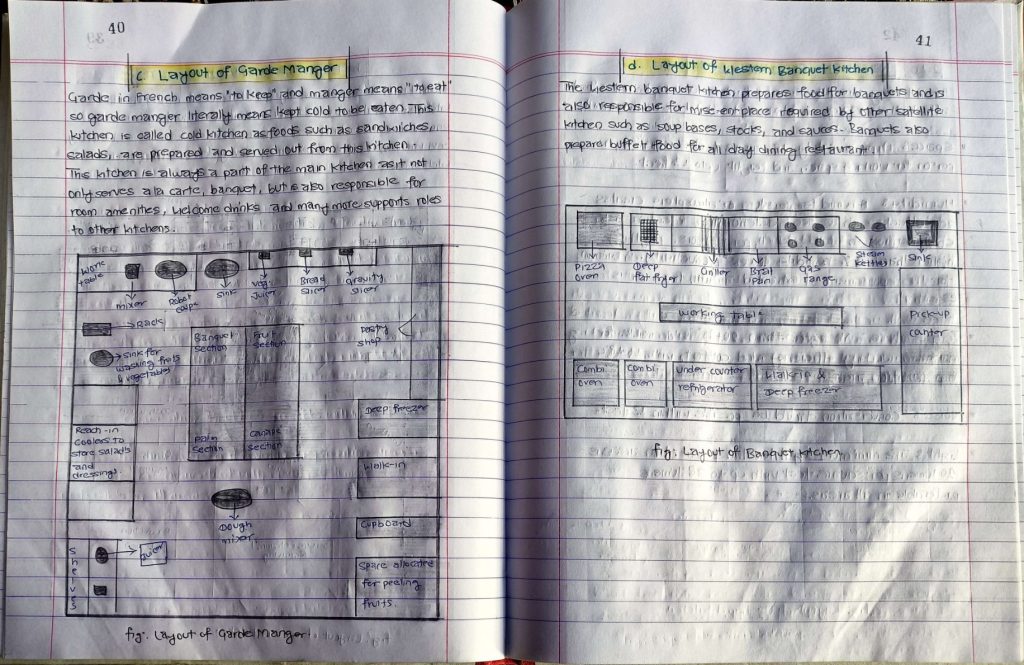 40
c. Layout of Garde Manger
Garde in French means "to keep" and manger means "to eat"
so garde manger literally means kept cold to be eaten. This
kitchen is called cold kitchen as foods such as sandwiches,
salads, are prepared and served out from this kitchen.
This kitchen is always a part of the main kitchen as it not
only serves ala carte, banquet, but is also responsible for
room amenities, welcome drinks and many more supports roles
to other kitchens.
Work
table
mixer
Robot
sink
Veg.
Juicer
Bread
slicer
gravity
slicer
Rack
sink for
washing fruits
& vegetables
Banquet
section
Fruit
section
Pastry
shop
section
Canape
section
Reach-in
coolers to
store salads
and
dressings
Deep freezer
Walk-in
Dough
mixer
Cupboard
Shelves
Space allocated
for peeling
fruits.
fig: Layout of Garde Manger
41
d. Layout of Western Banquet Kitchen
The Western banquet kitchen prepares food for banquets and is
also responsible for misc-en-place required by other satellite
kitchen such as soup bases, stocks, and sauces. Banquets also
prepare buffet food for all day dining restaurant.
Pizza
oven
Deep
fat fryer
Griller
Brat
Pan
Gas
range
Steam
kettles
sink
working table
Pick-up
canter
Combi
oven
Combi-
oven
under counter
refrigerator
Walk-in &
Deep freezer
fig: Layout of Banquet kitchen